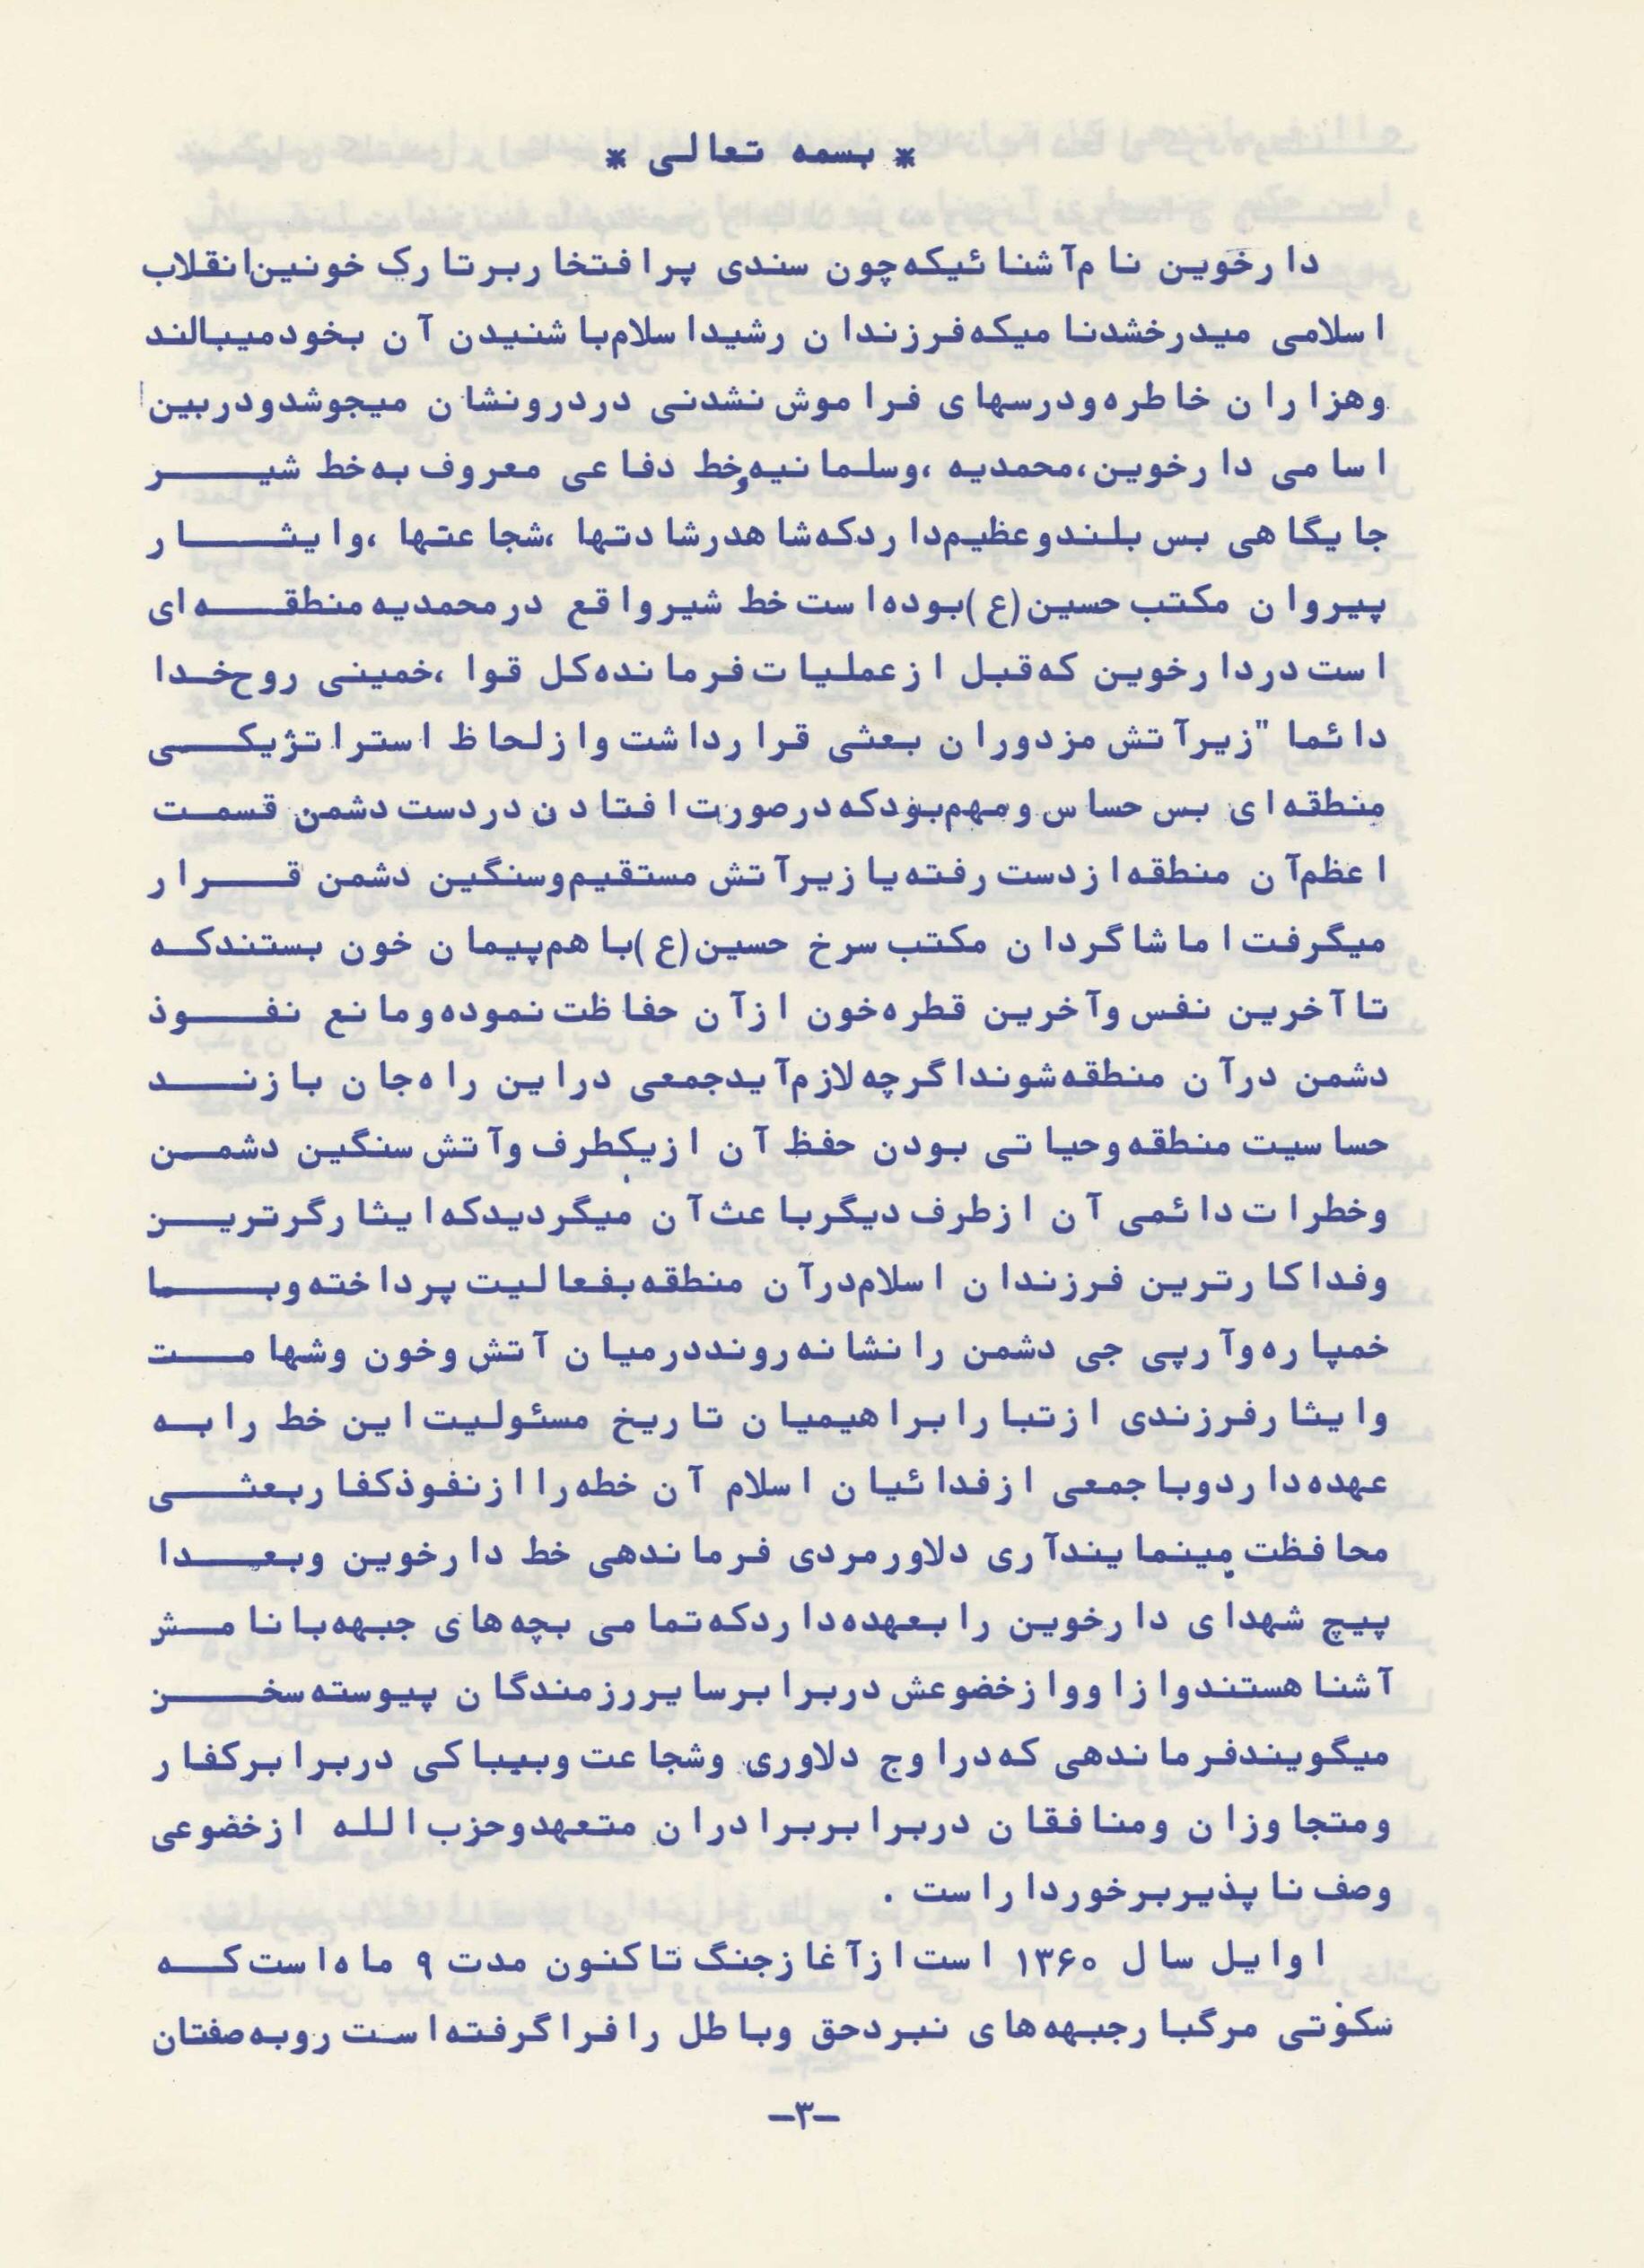 * بسمه تعالی *
دارخوین نام آشنائیکه چون سندی پرافتخار بر تارک خونین انقلاب
اسلامی میدرخشد نامیکه فرزندان رشید اسلام با شنیدن آن بخود میبالند
و هزاران خاطره و درسهای فراموش نشدنی در درونشان میجوشد و در بین
اسامی دارخوین، محمدیه ، و سلمانیه و خط دفاعی معروف به خط شیر
جایگاهی بس بلند و عظیم دارد که شاهد رشادتها ، شجاعتها ، و ایثار
پیروان مکتب حسین (ع) بوده است خط شیر واقع در محمدیه منطقه ای
است در دارخوین که قبل از عملیات فرمانده کل قوا ، خمینی روح خدا
دائما " زیر آتش مزدوران بعثی قرار داشت و از لحاظ استراتژیکی
منطقه ای بس حساس و مهم بود که در صورت افتادن در دست دشمن قسمت
اعظم آن منطقه از دست رفته یا زیر آتش مستقیم و سنگین دشمن قرار
میگرفت اما شاگردان مکتب سرخ حسین (ع) با هم پیمان خون بستند که
تا آخرین نفس و آخرین قطره خون از آن حفاظت نموده و مانع نفوذ
دشمن در آن منطقه شوند اگر چه لازم آید جمعی در این راه جان بازند
حساسیت منطقه و حیاتی بودن حفظ آن از یکطرف و آتش سنگین دشمن
و خطرات دائمی آن از طرف دیگر باعث آن میگردید که ایثارگرترین
و فداکارترین فرزندان اسلام در آن منطقه بفعالیت پرداخته و با
خمپاره و آرپی جی دشمن را نشانه روند در میان آتش و خون و شهامت
و ایثار فرزندی از تبار ابراهیمیان تاریخ مسئولیت این خط را به
عهده دارد و با جمعی از فدائیان اسلام آن خطه را از نفوذ کفار بعثی
محافظت مینمایند آری دلاورمردی فرماندهی خط دارخوین و بعدا
پیچ شهدای دارخوین را بعهده دارد که تمامی بچه های جبهه با نامش
آشنا هستند و از او و از خضوعش در برابر سایر رزمندگان پیوسته سخن
میگویند فرماندهی که در اوج دلاوری و شجاعت و بیباکی در برابر کفار
و متجاوزان و منافقان در برابر برادران متعهد و حزب الله از خضوعی
وصف ناپذیر برخوردار است .
اوایل سال ۱۳۶۰ است از آغاز جنگ تاکنون مدت ۹ ماه است که
سکوتی مرگبار جبهه های نبرد حق و باطل را فرا گرفته است روبه صفتان
-۳-